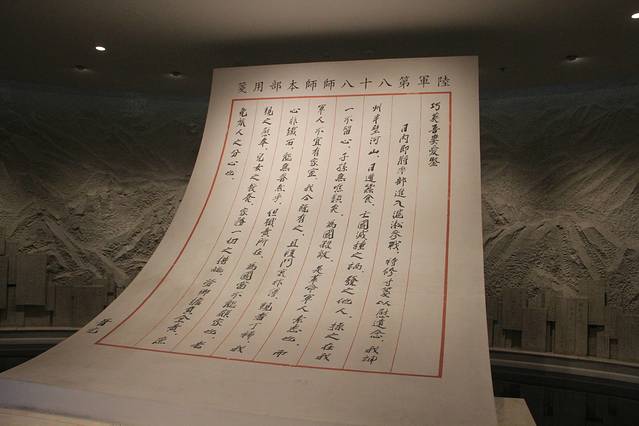 陸軍第八十八師師本部用箋
巧英吾妻愛鑒
日內即將率部進入滬淞參戰，特修寸箋以慰遠念，我神
州半壁河山，日遭蠶食，亡國滅種之禍，發之他人，操之在我
一不留心，子孫無噍類矣，為國殺敵，是革命軍人素志也，而
軍人不宜有家室，我今既有之，且復門衰祚薄，親者丁稀，我
心非鐵石，能無眷然乎，但職責所在，為國當不能顧家也，老
親之慰奉，兒女之教養，家務一切之措施，希卿偏負全責，庶
免旅人之分心也，